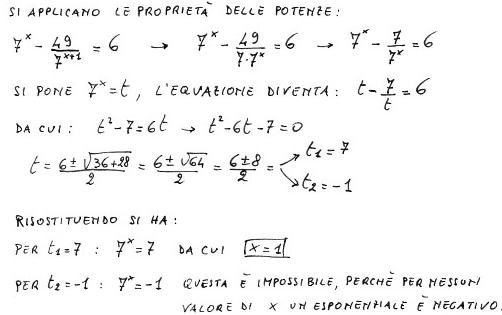 SI APPLICANO LE PROPRIETÀ DELLE POTENZE:
7^x - 49/7^(x+1) = 6 → 7^x - 49/(7·7^x) = 6 → 7^x - 7/7^x = 6
SI PONE 7^x = t, L'EQUAZIONE DIVENTA: t - 7/t = 6
DA CUI: t² - 7 = 6t → t² - 6t - 7 = 0
t = (6 ± √(36+28))/2 = (6 ± √64)/2 = (6 ± 8)/2 = → t₁ = 7
→ t₂ = -1
RISOSTITUENDO SI HA:
PER t₁ = 7 : 7^x = 7 DA CUI x = 1
PER t₂ = -1 : 7^x = -1 QUESTA È IMPOSSIBILE, PERCHÈ PER NESSUN
VALORE DI x UN ESPONENZIALE È NEGATIVO.